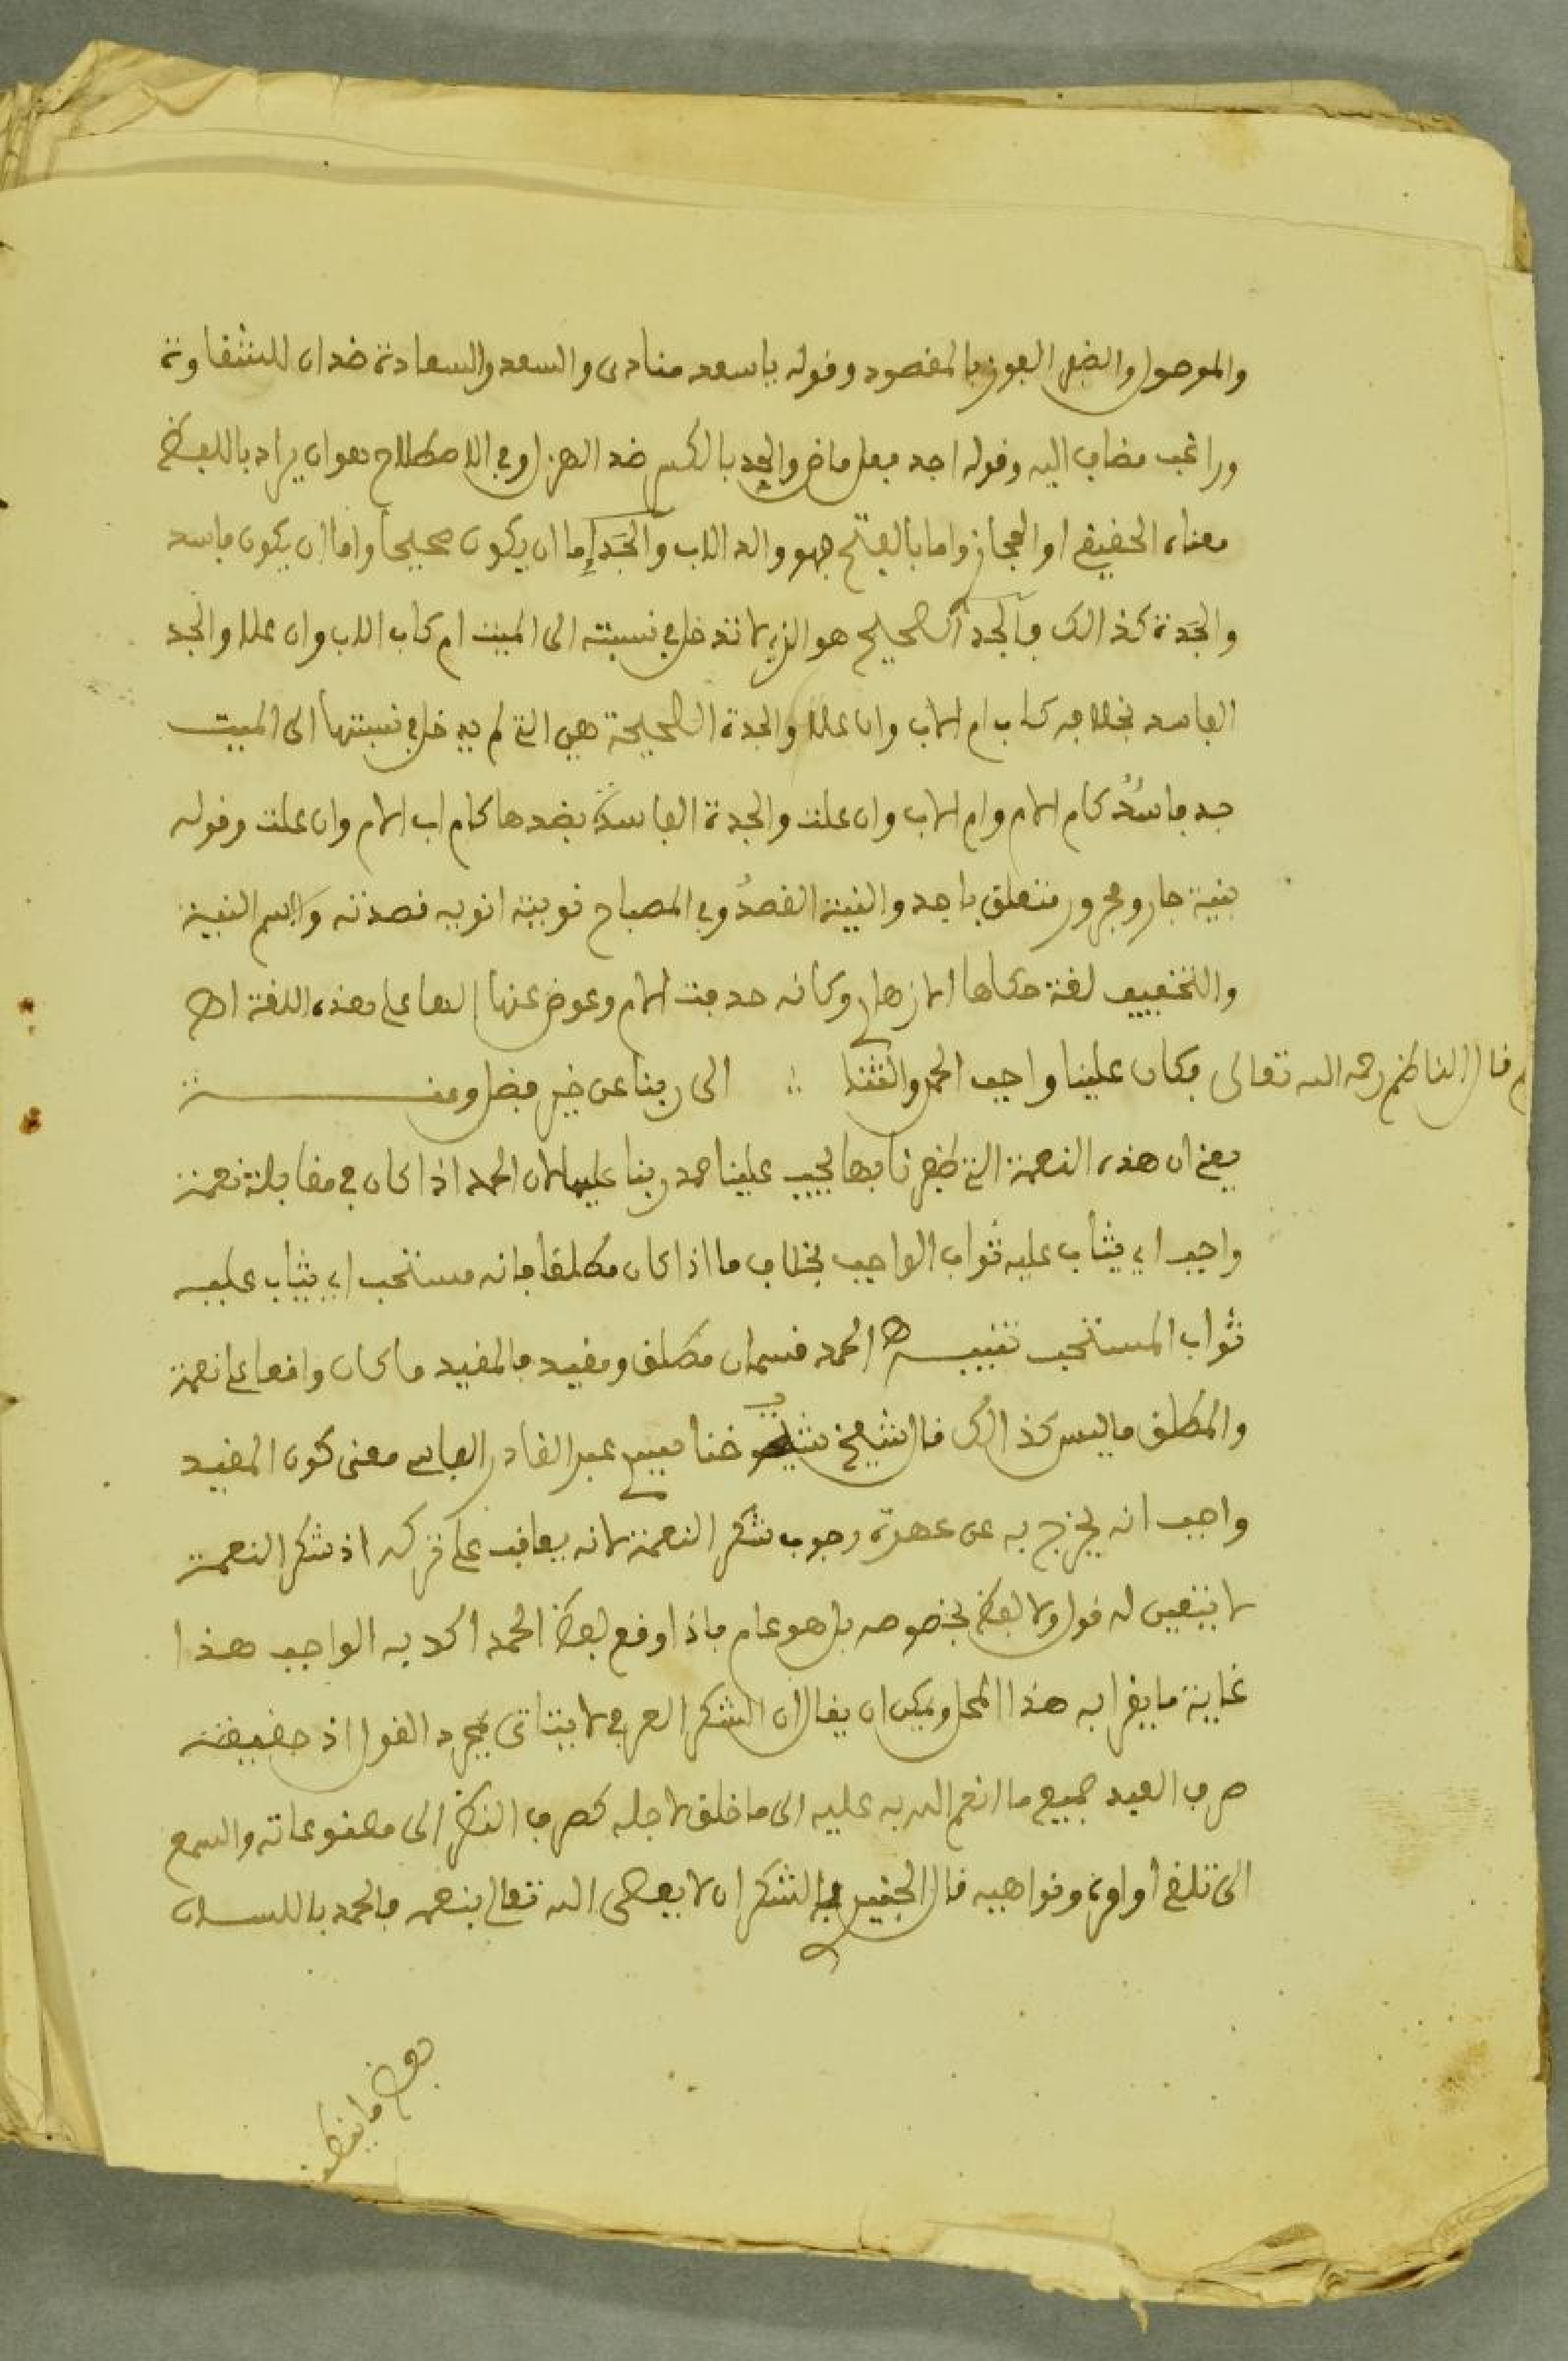 والموصول والظفر الفوز بالمقصود وقوله ياسعد منادى والسعد والسعادة ضدان للشقاوة
وراغب مضاف اليه وقوله اجد فعل ماض والجد بالكسر ضد الهزل وفي الاصطلاح هو ان يراد باللفظ
معناه الحقيقي او المجازي واما بالفتح فهو والد الاب والجد إما ان يكون صحيحا واما ان يكون فاسد
والجدة كذالك فالجد الصحيح هو الذي لا تدخل في نسبته الى الميت ام كاب الاب وان علا والجد
الفاسد بخلافه كاب ام الاب وان علا والجدة الصحيحة هي التي لم يدخل في نسبتها الى الميت
جد فاسد كام الام وام الاب وان علت والجدة الفاسدة بضدها كام اب الام وان علت وقوله
بنية جار ومجرور متعلق باجد والنية القصد وفي المصباح نويته انويه قصدته والاسم النية
والتخفيف لغة حكاها الازهري وكانه حذفت اللام وعوض عنها الهاء على هذه اللغة اهـ
قال الناظم رحمه الله تعالى فكان علينا واجب الحمد والثنا ∴ الى ربنا عن خير فضل ومنـــة
يعني ان هذه النعمة التي ظفرنا بها يجب علينا حمد ربنا عليها لان الحمد اذا كان في مقابلة نعمة
واجب اي يثاب عليه ثواب الواجب بخلاف ما اذا كان مطلقا فانه مستحب اي يثاب عليه
ثواب المستحب تنبيـــه الحمد قسمان مطلق ومقيد فالمقيد ما كان واقعا على نعمة
والمطلق ما ليس كذالك قال الشيخ شيوخنا سيدي عبد القادر الفاسي معنى كون المقيد
واجب انه يخرج به عن عهدة وجوب شكر النعمة لا انه يعاقب على تركه اذ شكر النعمة
لا يتعين له قول ولا لفظ بخصوصه بل هو عام فاذا وقع لفظ الحمد اكد به الواجب هذا
غاية ما يقرا به هذا المحل ويمكن ان يقال ان الشكر العرفي لا يتاتى بمجرد القول اذ حقيقته
صرف العبد جميع ما انعم الله به عليه الى ما خلق لاجله كصرف النظر الى مصنوعاته والسمع
الى تلقي اوامره ونواهيه قال الجنيد الشكر ان لا يعصى الله تعالى بنعمه فالحمد باللسان
بعض ما